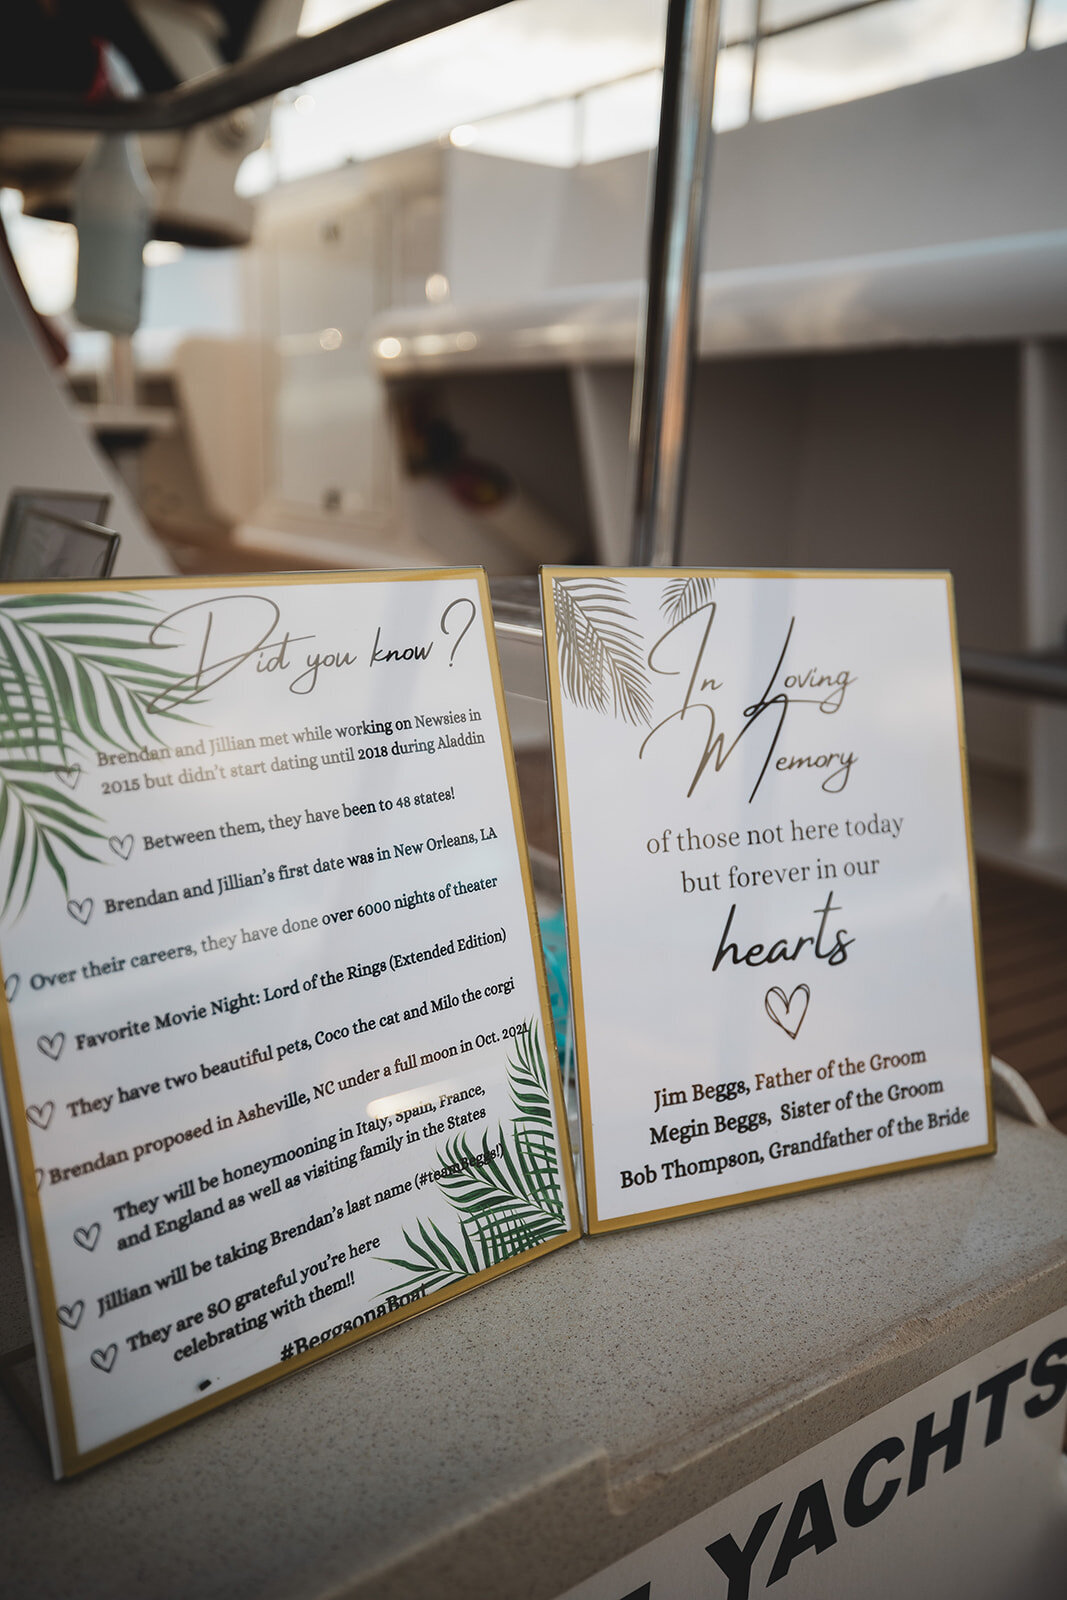 Did you know?
Brendan and Jillian met while working on Newsies in
2015 but didn't start dating until 2018 during Aladdin
Between them, they have been to 48 states!
Brendan and Jillian's first date was in New Orleans, LA
Over their careers, they have done over 6000 nights of theater
Favorite Movie Night: Lord of the Rings (Extended Edition)
They have two beautiful pets, Coco the cat and Milo the corgi
Brendan proposed in Asheville, NC under a full moon in Oct. 2021
They will be honeymooning in Italy, Spain, France,
and England as well as visiting family in the States
Jillian will be taking Brendan's last name (#teamBeggs!)
They are SO grateful you're here
celebrating with them!!
#BeggsonaBoat
In Loving
Memory
of those not here today
but forever in our
hearts
Jim Beggs, Father of the Groom
Megin Beggs, Sister of the Groom
Bob Thompson, Grandfather of the Bride
YACHTS